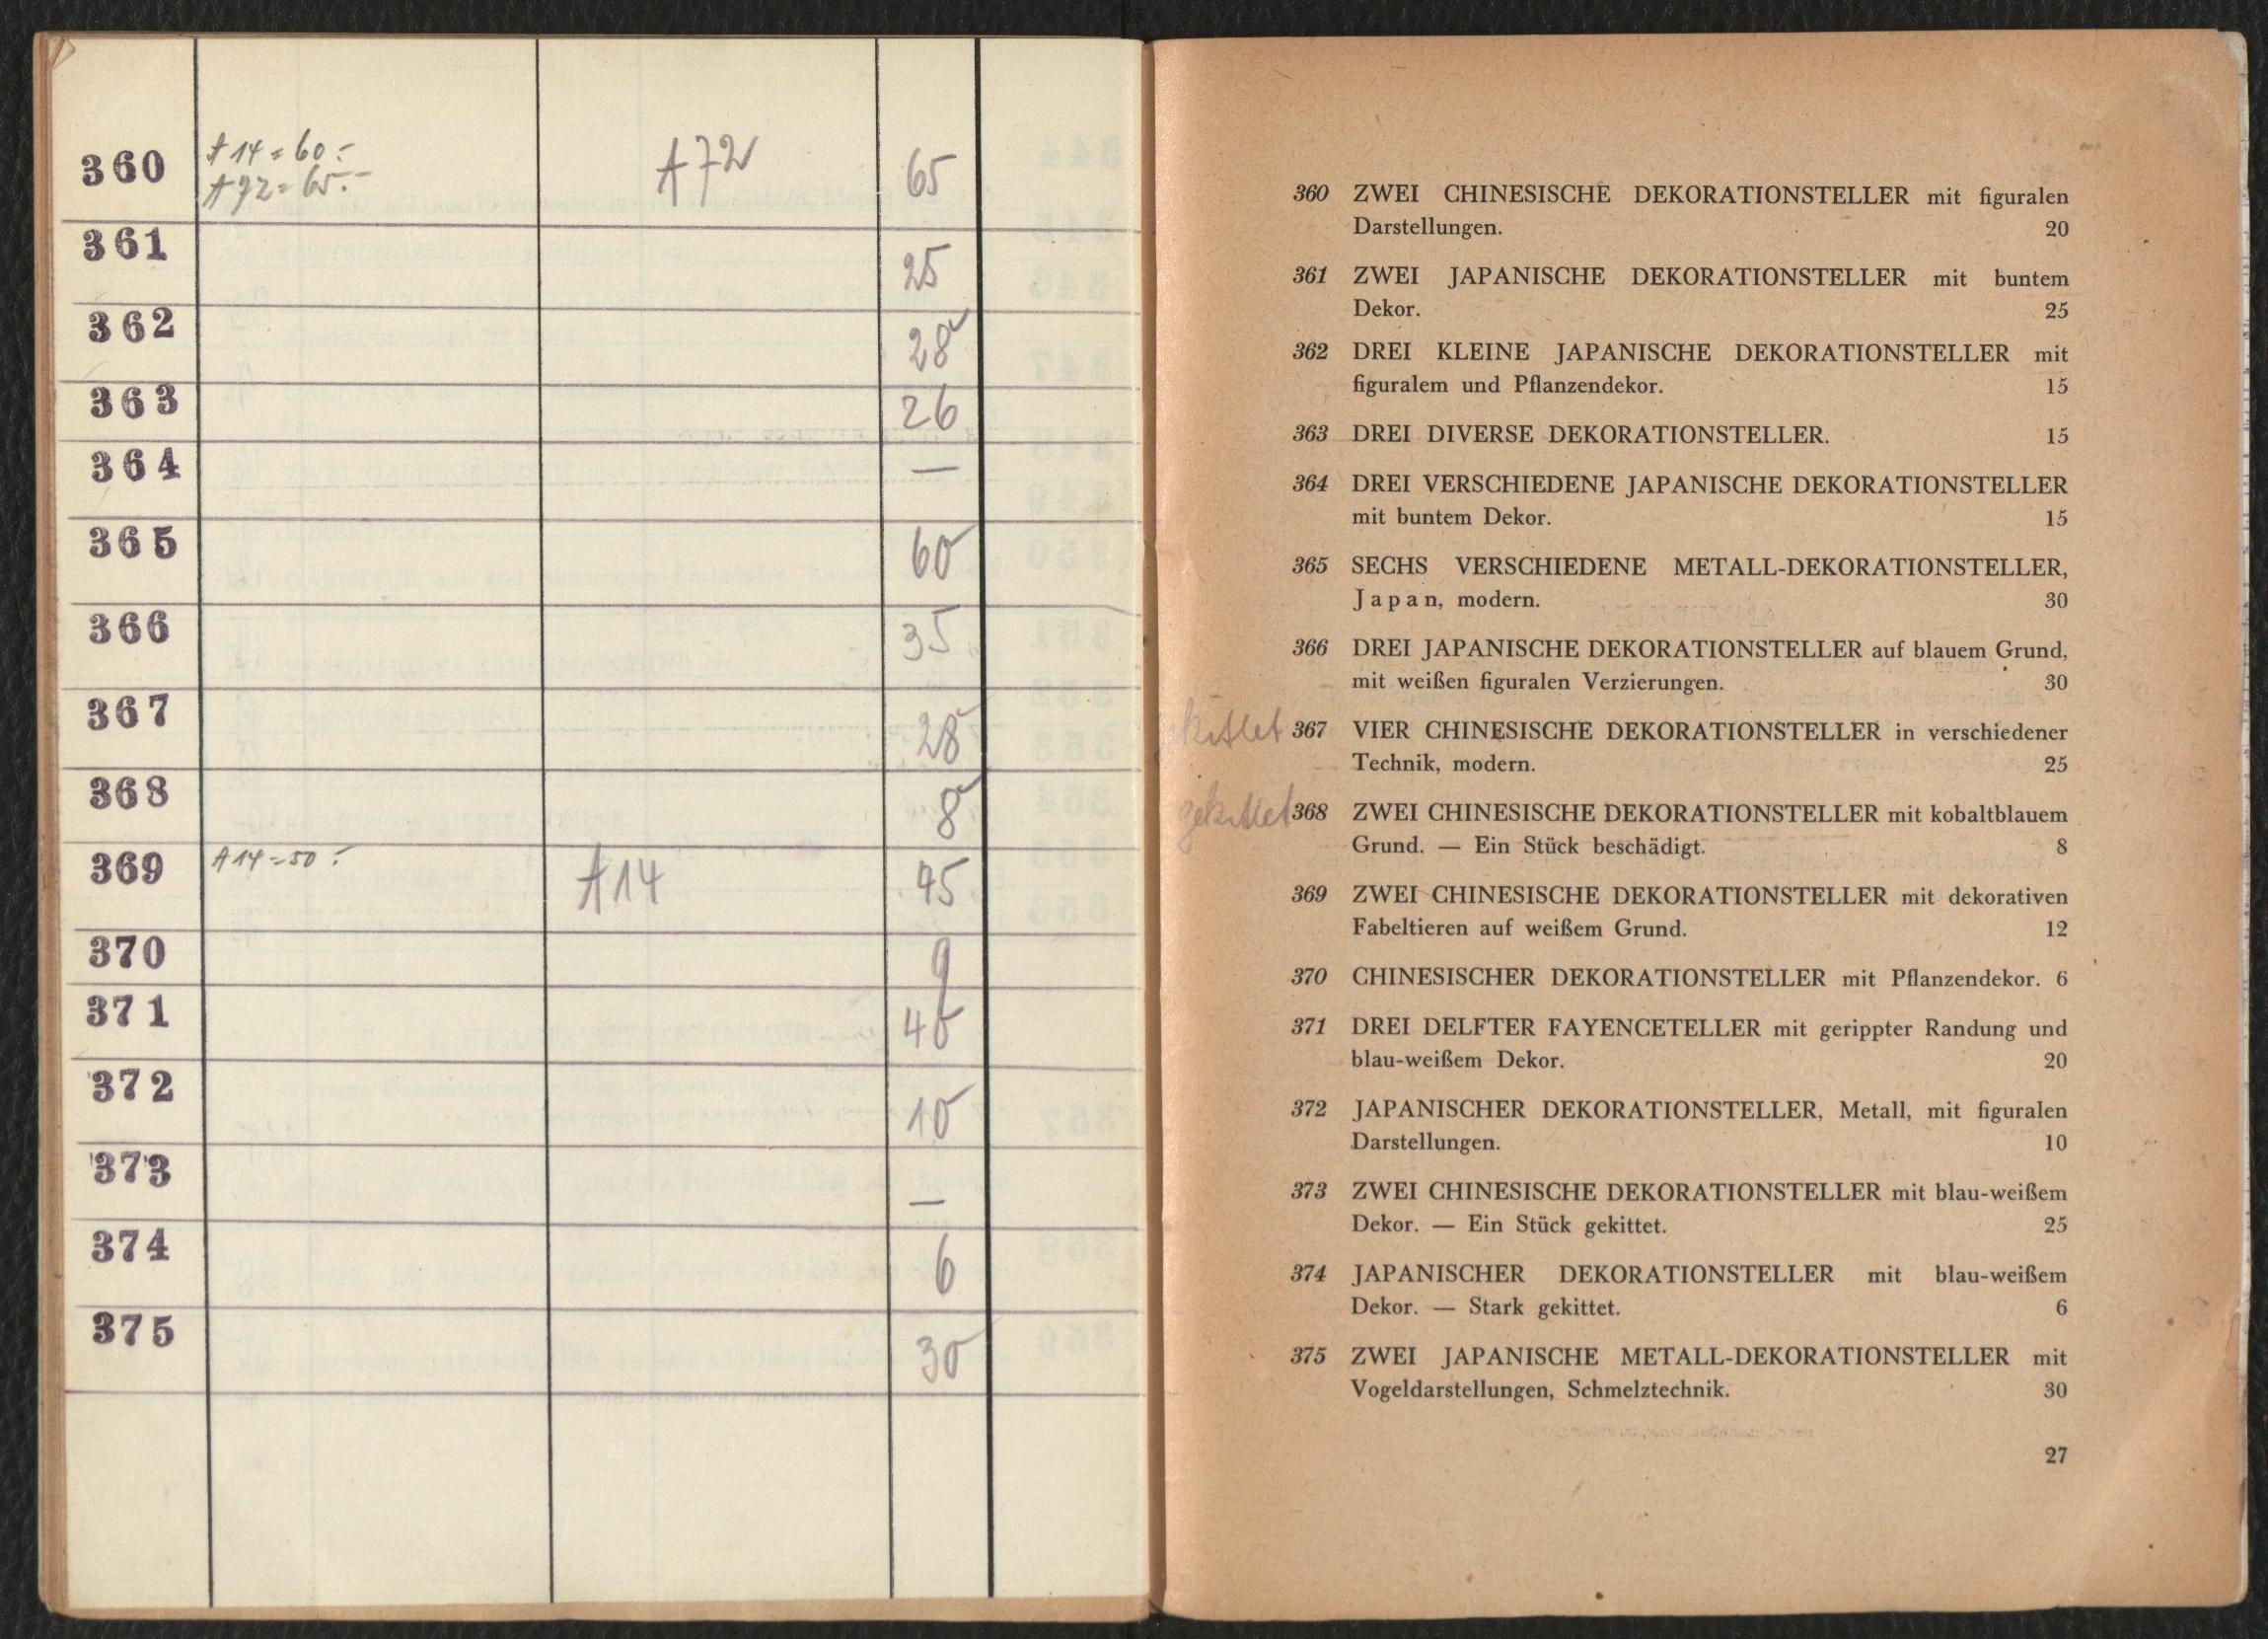 360 A14=60.-
A72=65.- A72 65
361 25
362 28
363 26
364 —
365 60
366 35
367 28
368 8
369 A14=50.- A14 45
370 9
371 40
372 10
373 —
374 6
375 30
360 ZWEI CHINESISCHE DEKORATIONSTELLER mit figuralen
Darstellungen. 20
361 ZWEI JAPANISCHE DEKORATIONSTELLER mit buntem
Dekor. 25
362 DREI KLEINE JAPANISCHE DEKORATIONSTELLER mit
figuralem und Pflanzendekor. 15
363 DREI DIVERSE DEKORATIONSTELLER. 15
364 DREI VERSCHIEDENE JAPANISCHE DEKORATIONSTELLER
mit buntem Dekor. 15
365 SECHS VERSCHIEDENE METALL-DEKORATIONSTELLER,
Japan, modern. 30
366 DREI JAPANISCHE DEKORATIONSTELLER auf blauem Grund,
mit weißen figuralen Verzierungen. 30
367 VIER CHINESISCHE DEKORATIONSTELLER in verschiedener
Technik, modern. 25
gekittet 368 ZWEI CHINESISCHE DEKORATIONSTELLER mit kobaltblauem
Grund. — Ein Stück beschädigt. 8
369 ZWEI CHINESISCHE DEKORATIONSTELLER mit dekorativen
Fabeltieren auf weißem Grund. 12
370 CHINESISCHER DEKORATIONSTELLER mit Pflanzendekor. 6
371 DREI DELFTER FAYENCETELLER mit gerippter Randung und
blau-weißem Dekor. 20
372 JAPANISCHER DEKORATIONSTELLER, Metall, mit figuralen
Darstellungen. 10
373 ZWEI CHINESISCHE DEKORATIONSTELLER mit blau-weißem
Dekor. — Ein Stück gekittet. 25
374 JAPANISCHER DEKORATIONSTELLER mit blau-weißem
Dekor. — Stark gekittet. 6
375 ZWEI JAPANISCHE METALL-DEKORATIONSTELLER mit
Vogeldarstellungen, Schmelztechnik. 30
27